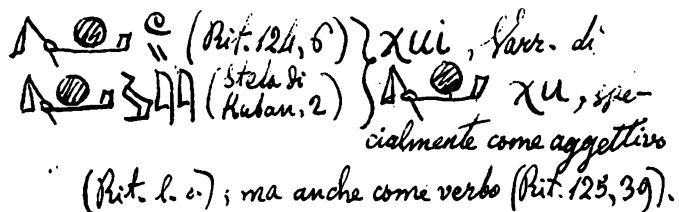 (Rit. 124, 6) } χui, Varr. di
(Stela di Kuban, 2) } χu, spe-
cialmente come aggettivo
(Rit. l. c.); ma anche come verbo (Rit. 125, 39).